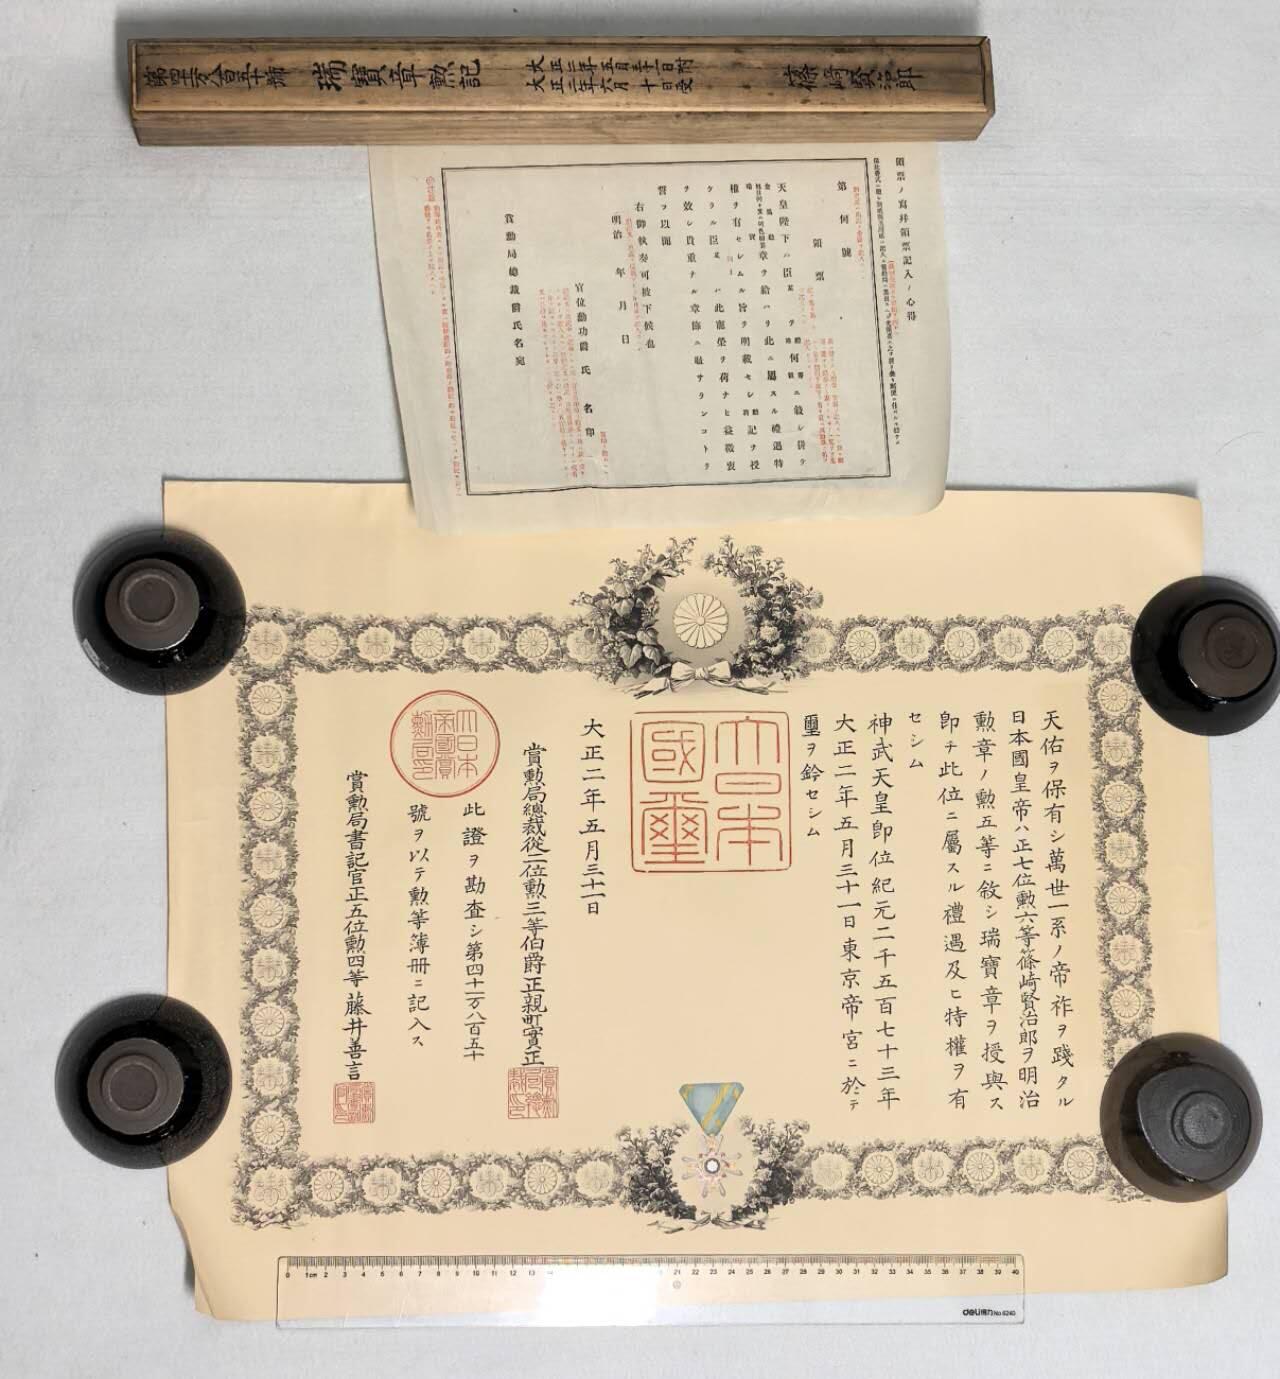 第四十一万八百五十號
瑞寶章勲記
大正二年五月三十一日附
大正二年六月十日受
篠崎賢治郎
領票ノ寫幷領票記入ノ心得
第何號
領票
天皇陛下ハ臣某ヲ勲何等ニ敍シ併テ
章ヲ給ハリ此ニ屬スル禮遇特
權ヲ有セシムル旨ヲ明載セシ勲記ヲ授
ケラル臣某ハ此寵榮ヲ荷ナヒ益微衷
ヲ效シ貴重ナル章飾ニ耻サランコトヲ
誓フ以聞
右御執奏可被下候也
明治 年 月 日
官位勲功爵 氏 名 印
賞勲局總裁爵氏名宛
天佑ヲ保有シ萬世一系ノ帝祚ヲ踐タル
日本國皇帝ハ正七位勲六等篠崎賢治郎ヲ明治
勲章ノ勲五等ニ敍シ瑞寶章ヲ授與ス
卽チ此位ニ屬スル禮遇及ヒ特權ヲ有
セシム
神武天皇卽位紀元二千五百七十三年
大正二年五月三十一日東京帝宮ニ於テ
璽ヲ鈐セシム
大日本
國璽
大正二年五月三十一日
賞勲局總裁從二位勲三等伯爵正親町實正
此證ヲ勘査シ第四十一万八百五十
號ヲ以テ勲等簿册ニ記入ス
大日本
帝國賞
勲局印
賞勲局書記官正五位勲四等藤井善言
0 1cm 2 3 4 5 6 7 8 9 10 11 12 13 14 21 22 23 24 25 26 27 28 29 30 31 32 33 34 35 36 37 38 39 40
deli得力 No.6240